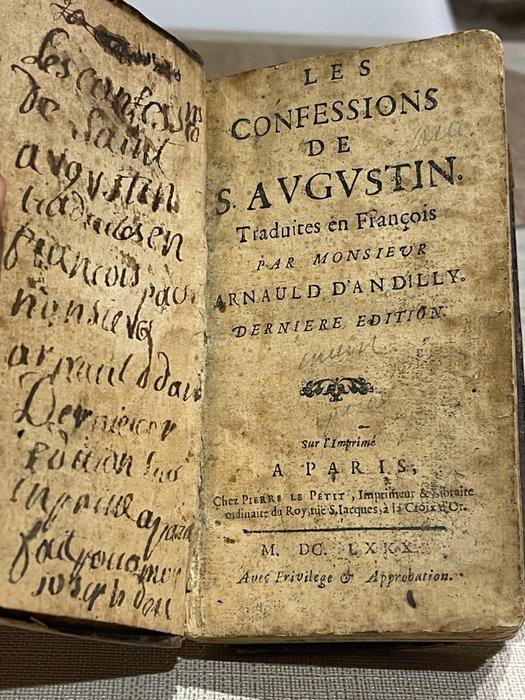 Les confessions
de Saint
augustin
traduites en
françois par
monsieur
arnauld dan
Derniere
edition sur
inprime a paris
LES
CONFESSIONS
DE
S. AVGVSTIN.
Traduites en François
PAR MONSIEVR
ARNAULD D'ANDILLY.
DERNIERE EDITION.
Sur l'Imprimé
A PARIS,
Chez PIERRE LE PETIT, Imprimeur & Libraire
ordinaire du Roy, ruë S. Iacques, à la Croix d'Or.
M. DC. LXXX.
Avec Privilege & Approbation.